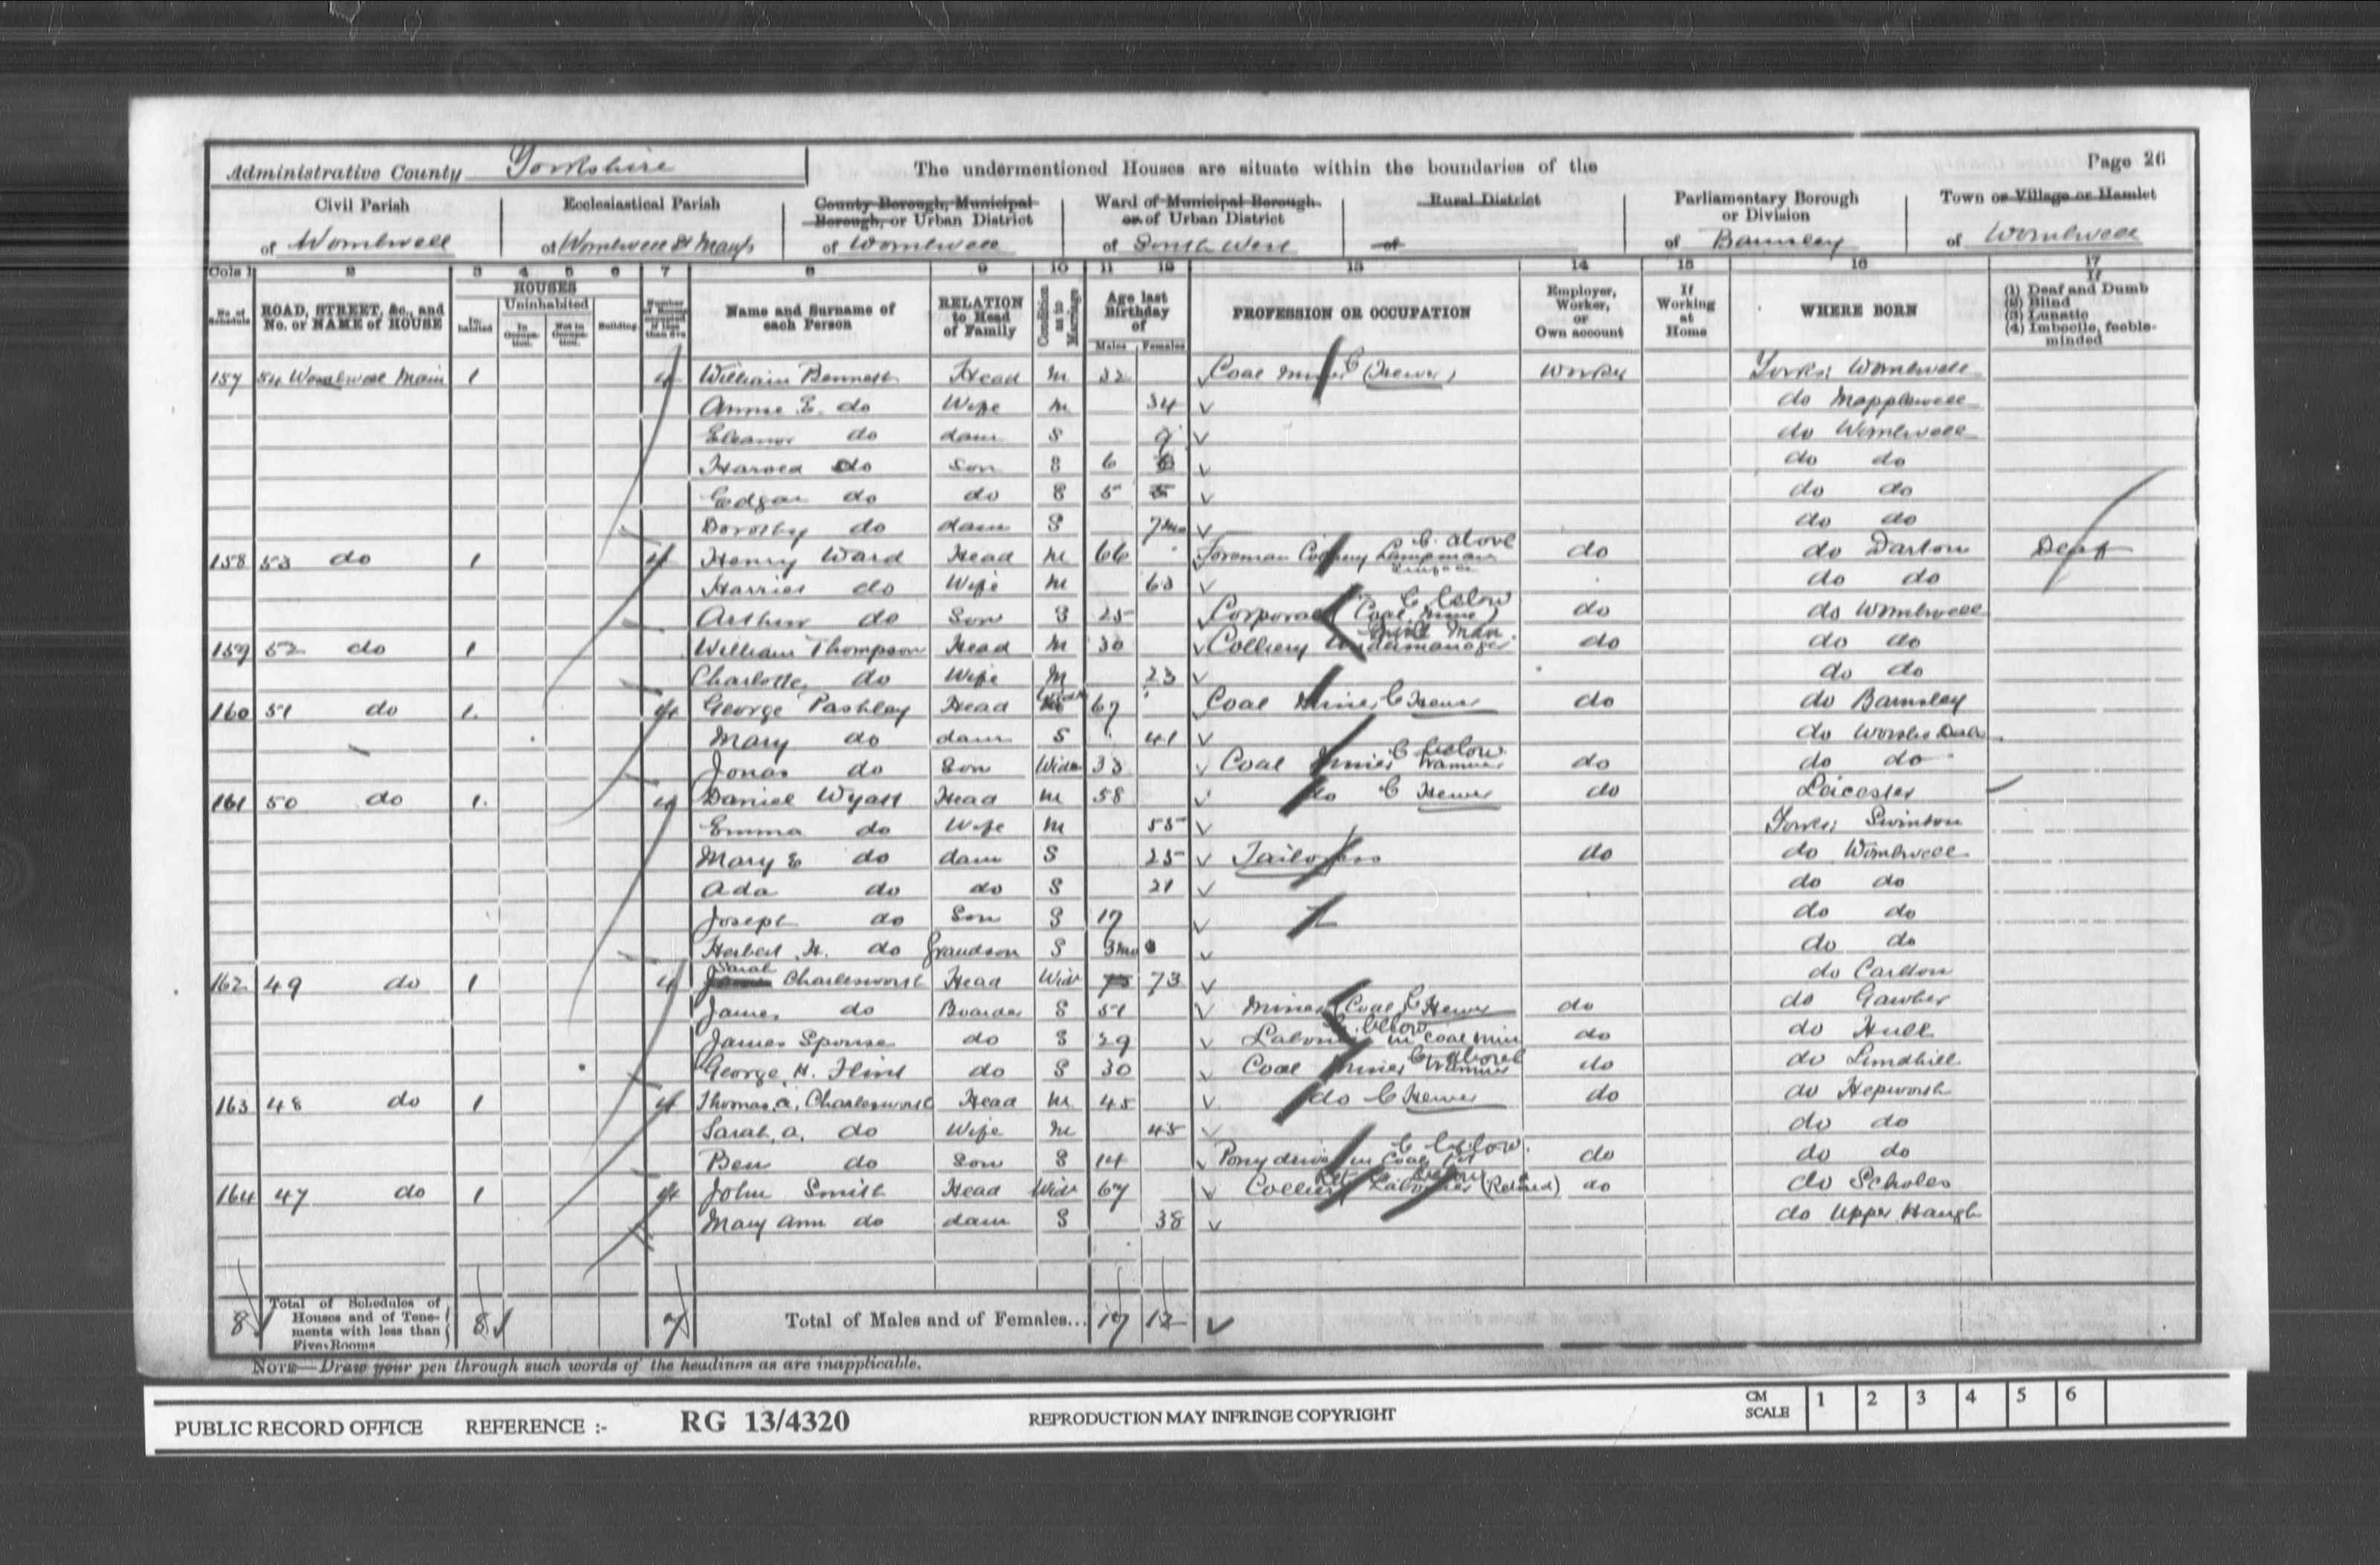 Administrative County Yorkshire The undermentioned Houses are situate within the boundaries of the Page 26
Civil Parish Ecclesiastical Parish County Borough, Municipal Borough, or Urban District Ward of Municipal Borough or of Urban District Rural District Parliamentary Borough or Division Town or Village or Hamlet
of Wombwell of Wombwell St Mary's of Wombwell of South West of of Barnsley of Wombwell
Cols 1 2 3 4 5 6 7 8 9 10 11 12 13 14 15 16 17
No. of Schedule ROAD, STREET, &c., and No. or NAME of HOUSE HOUSES Inhabited Uninhabited In Occupation. Not in Occupation. Building. Number of Rooms occupied if less than five Name and Surname of each Person RELATION to Head of Family Condition as to Marriage Age last Birthday of Males Females PROFESSION OR OCCUPATION Employer, Worker, or Own account If Working at Home WHERE BORN If (1) Deaf and Dumb (2) Blind (3) Lunatic (4) Imbecile, feeble-minded
157 54 Wombwell Main 1 4 William Bennett Head M 32 Coal Miner (Hewer) Worker Yorks; Wombwell
Annie E. do Wife M 34 do Mapplewell
Eleanor do daur S 9 do Wombwell
Harold do Son S 6 do do
Edgar do do S 5 do do
Dorothy do daur S 7mo do do
158 53 do 1 4 Henry Ward Head M 66 Foreman Colliery Lampman C. above Surface do do Darton Deaf
Harriet do Wife M 63 do do
Arthur do Son S 25 Corporal (Coal Mine) C below do do Wombwell
159 52 do 1 William Thompson Head M 30 Colliery Undermanager Man. do do do
Charlotte do Wife M 23 do do
160 51 do 1. 4 George Pashley Head Widr 67 Coal Miner C Hewer do do Barnsley
Mary do daur S 41 do Worsbro Dale
Jonas do Son Widr 33 Coal Miner Trammer C below do do do
161 50 do 1. 4 Daniel Wyatt Head M 58 do C Hewer do Leicester
Emma do Wife M 55 Yorks; Swinton
Mary E do daur S 25 Tailoress do do Wombwell
Ada do do S 21 do do
Joseph do Son S 17 do do
Herbert H. do Grandson S 3mo do do
162 49 do 1 4 Sarah Charlesworth Head Wid 73 do Carlton
James do Boarder S 51 Miner (Coal) C Hewer do do Gawber
James Spouse do S 29 Labourer in coal mine C. below do do Hull
George H. Flint do S 30 Coal Miner Trammer C above do do Lundhill
163 48 do 1 4 Thomas A. Charlesworth Head M 45 do C Hewer do do Hepworth
Sarah A. do Wife M 45 do do
Ben do Son S 14 Pony driver in Coal Pit C below. do do do
164 47 do 1 4 John Smith Head Widr 67 Colliery Labourer (Retired) do do Scholes
Mary Ann do daur S 38 do Upper Haugh
8 Total of Schedules of Houses and of Tenements with less than Five Rooms 8 7 Total of Males and of Females... 17 12
NOTE—Draw your pen through such words of the headings as are inapplicable.
PUBLIC RECORD OFFICE REFERENCE :- RG 13/4320 REPRODUCTION MAY INFRINGE COPYRIGHT CM SCALE 1 2 3 4 5 6